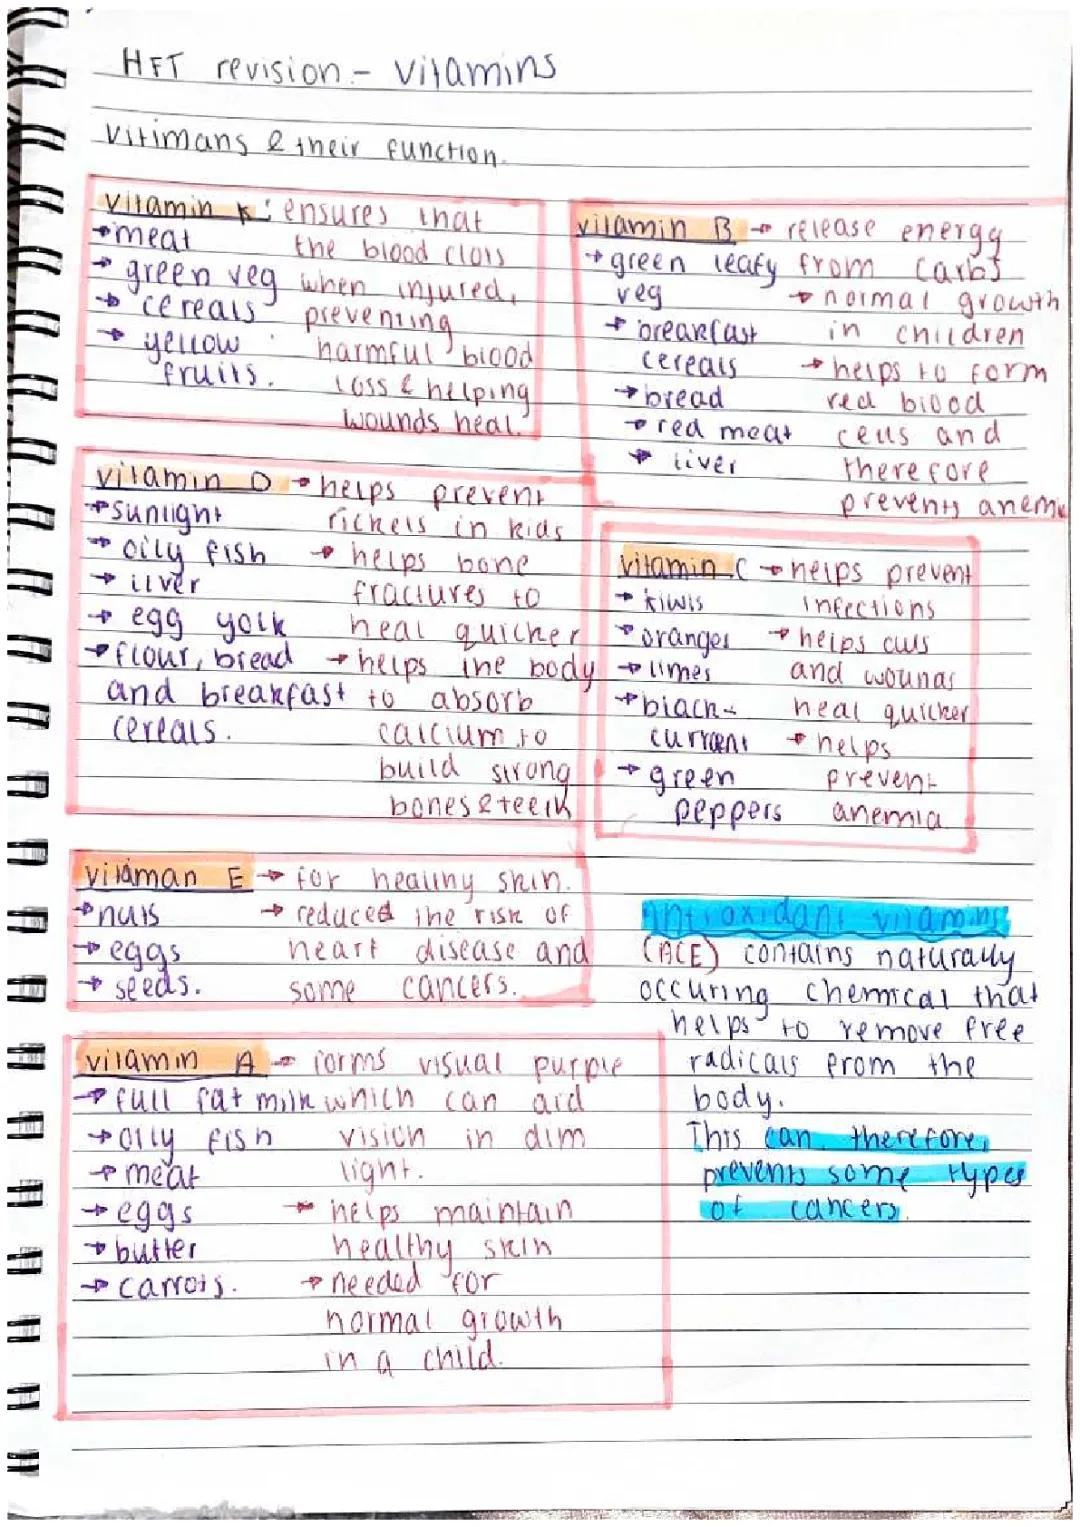 HFT revision - vitamins
Vitimans & their function.
vitamin K: ensures that
→meat the blood clots
→ green veg when injured,
→ cereals preventing
→ yellow harmful blood
fruits. loss & helping
wounds heal.
vitamin B → release energy
→green leafy from carbs
veg → normal growth
→ breakfast in children
cereals → helps to form
→bread red blood
→ red meat cells and
→ liver therefore
prevents anem
vitamin D → helps prevent
→sunlight rickets in kids
→ oily fish → helps bone
→ liver fractures to
→ egg yolk heal quicker
→flour, bread → helps the body
and breakfast to absorb
cereals. calcium to
build strong
bones & teeth
vitamin C → helps prevent
→ kiwis infections
→oranges → helps cuts
→limes and wounds
→black- heal quicker
currant → helps
→ green prevent
peppers anemia
vitaman E → for healthy skin.
→nuts → reduced the risk of
→eggs heart disease and
→ seeds. some cancers.
Antioxidant vitamins
(ACE) contains naturally
occuring chemical that
helps to remove free
radicals from the
body.
This can, therefore,
prevents some types
of cancers.
vitamin A → forms visual purple
→ full fat milk which can aid
→oily fish vision in dim
→ meat light.
→eggs → helps maintain
→butter healthy skin
→ carrots. → needed for
normal growth
in a child.